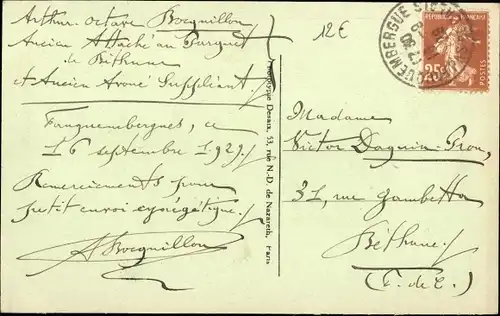 Arthur Octave Bocquillon
Ancien Attaché au Parquet
de Béthune
et Ancien Avoué Suppléant
Fauquembergues, ce
16 septembre 1929.
Remerciements pour
petit envoi
A Bocquillon
Phototypie Desaix, 53, rue N.-D. de Nazareth, Paris
12€
RÉPUBLIQUE FRANÇAISE
25c
POSTES
Madame
Victor Daquin-Prou,
31, rue Gambetta
Béthune
(P. de C.)